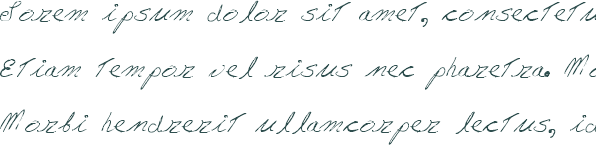 Lorem ipsum dolor sit amet, consectetu
Etiam tempor vel risus nec pharetra. Mo
Morbi hendrerit ullamcorper lectus, id